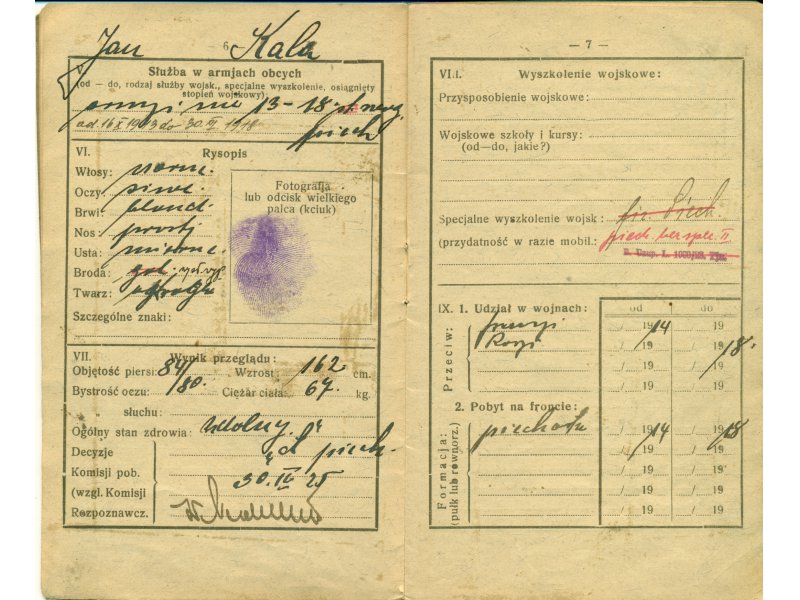 Jan 6 Kala
V. Służba w armjach obcych
(od — do, rodzaj służby wojsk., specjalne wyszkolenie, osiągnięty
stopień wojskowy):
13-18
od 16 X 1913 do 30. 1918
piech
VI. Rysopis
Włosy:
Oczy: siwe
Brwi: blond.
Nos prosty
Usta: mierne
Broda:
Twarz:
Szczególne znaki:
Fotografja
lub odcisk wielkiego
palca (kciuk)
VII. Wynik przeglądu:
Objętość piersi: 84/ Wzrost: 162 cm.
Bystrość oczu: /80. Ciężar ciała: 67. kg.
„ słuchu:
Ogólny stan zdrowia: zdolny „
Decyzje „A" piech.
Komisji pob. 30. IV 25
(wzgl. Komisji
Rozpoznawcz.
— 7 —
VIII. Wyszkolenie wojskowe:
Przysposobienie wojskowe:
Wojskowe szkoły i kursy:
(od—do, jakie?)
Specjalne wyszkolenie wojsk: Piech.
(przydatność w razie mobil.: piech. bez spec. II
IX. 1. Udział w wojnach: od do
Przeciw:
/ 1914 / 19
Rosji / 19 / 1918.
/ 19 / 19
/ 19 / 19
2. Pobyt na froncie:
Formacja:
(pułk lub równorz.)
piechota / 1914 / 1918
/ 19 / 19
/ 19 / 19
/ 19 / 19
/ 19 / 19